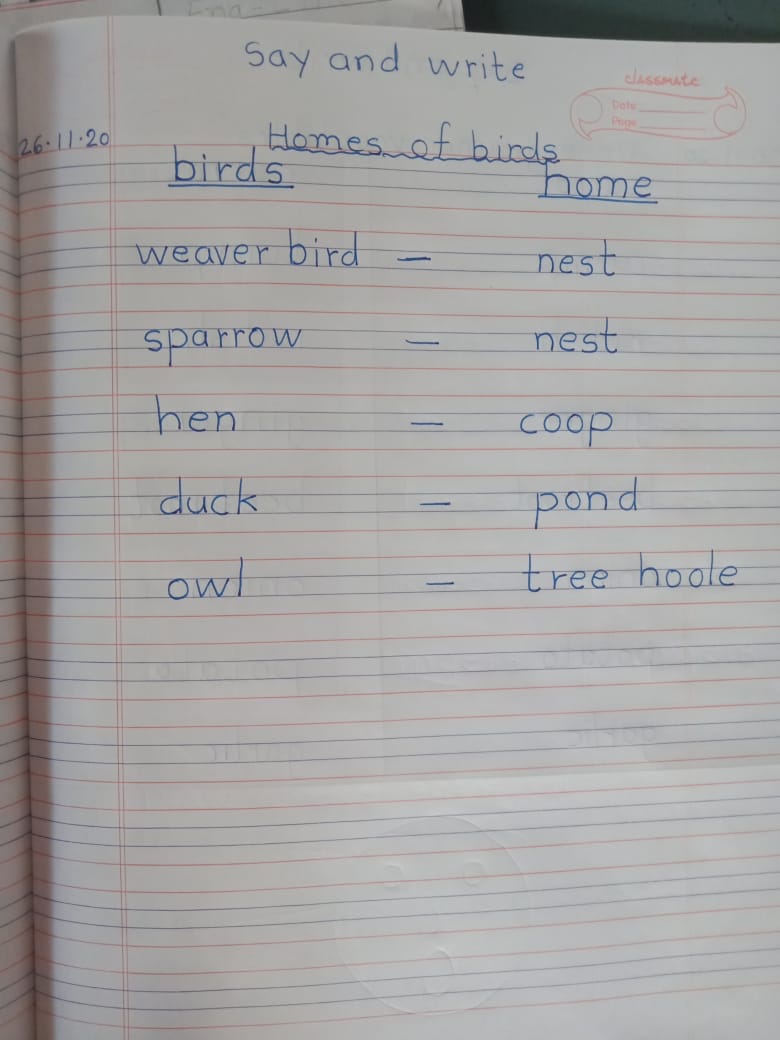 Ena-
Say and write
classmate
Date
Page
26.11.20
Homes of birds
birds home
weaver bird — nest
sparrow — nest
hen — coop
duck — pond
owl — tree hoole